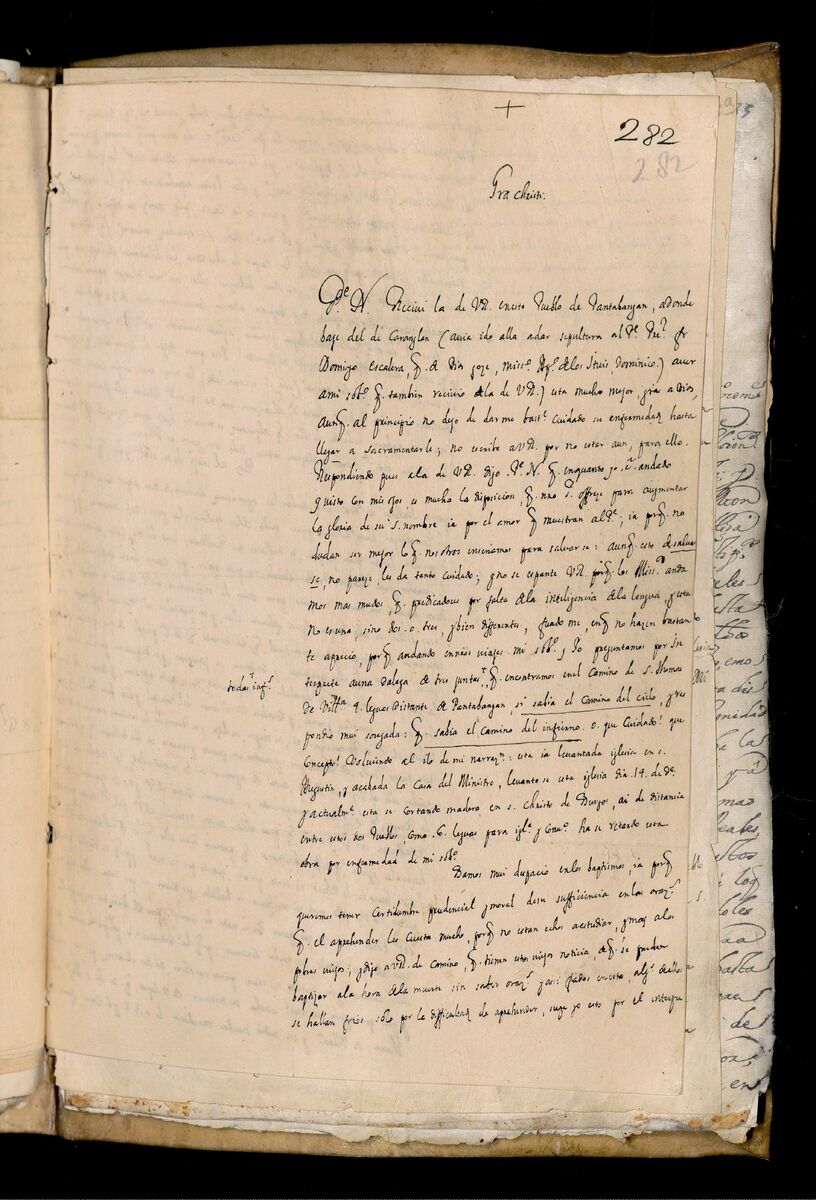 +
282
282
Gra Christi.
Pe. N. Recivi la de VR. eneste Pueblo de Pantabangan, adonde
baje del de Caranglan (avia ido alla adar sepultura al Pe. Fr
Domigo escalera, q. de Dios goze, misso. Apo. de los Ituis, Dominico.) aver
ami sobo. q. tambien recivio dela de VR.) esta mucho mejor, gra a Dios,
aunq. al principio no dejo de darme baste. Cuidado su enfermedad hasta
llegar a sacramentarle; no escribe aVR. por no estar aun, para ello.
Respondiendo pues ala de VR. digo Pe. N. q. enquanto yo e andado
y visto con mis ojos, es mucha la disposicion, q. nro Sr. ofreze para augmentar
la gloria de su s. nombre ia por el amor q. muestran al Pe.; ia porq. no
dudan ser mejor lo q. nosotros enseñamos para salvarse: aunq. esto de salvar
se, no pareze, les da tanto cuidado; y no se espante VR. porq. los Misso. anda
mos mas mudos, q. predicadores por falta dela inteligencia dela lengua, y esta
no es una, sino dos o tres, y bien differentes, fuado me, enq. no hazen bastan
te aprecio, porq. andando enños viajes mi sobo. y Yo preguntamos por In
terprete auna Dalaga de tres juntas, q. encontramos enel Camino de S. Thomas
todas infs.
De Villa 4. leguas distante de Pantabangan, si sabia el Camino del cielo, y res
pondio mui sosegada: q. sabia el camino del infierno. o. que Cuidado! que
Concepto! Volviendo al ilo de mi narrazn: esta ia levantada iglesia en S.
Augustin, y acabada la Casa del Ministro, levanto se esta iglesia dia 14. de De.
y actualme. esta se Cortando madera en S. Christo de Burgos, ai de distancia
entre estos dos Pueblos, como 6. leguas para igla. y Convo. ha se retardo esta
obra por enfermedad de mi sobo.
Damos mui despacio enlos baptismos, ia porq
queremos tener Certidumbre prudencial y moral desu sufficiencia en las orazs.
q. el aprehender les Cuesta mucho, porq. no estan echos aestudiar, y mas alos
pobres viejos; y digo aVR. de camino, q. tienen estos viejos noticia, de q. se pueden
baptizar ala hora dela muerte sin saber orazs. y assi fiados enesta, algs. dellos
se hallan frios solo por la difficultad de aprehender, supe yo esto por el interpre